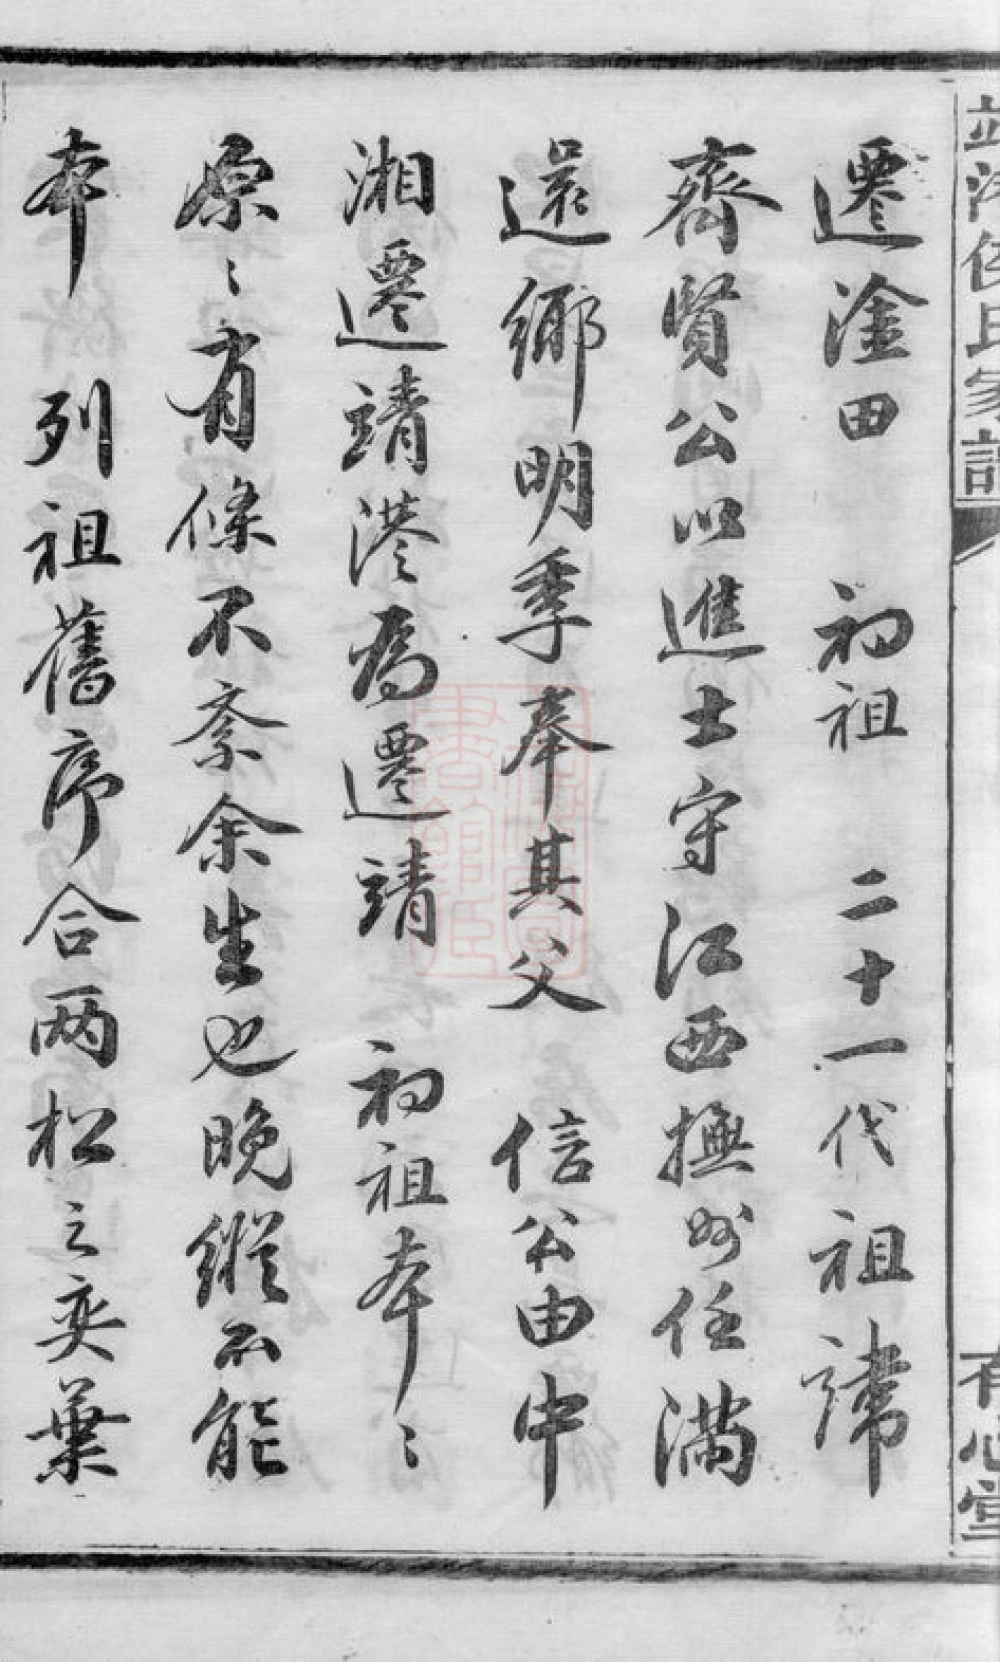 遷淦田　初祖　二十一代祖諱
齊賢公以進士守江西撫州任滿
還鄉明季奉其父　信公由中
湘遷靖港為遷靖　初祖本〻
原〻有條不紊余生也晚縱不能
本　列祖舊序合兩松之奕葉
氏家譜
有心堂